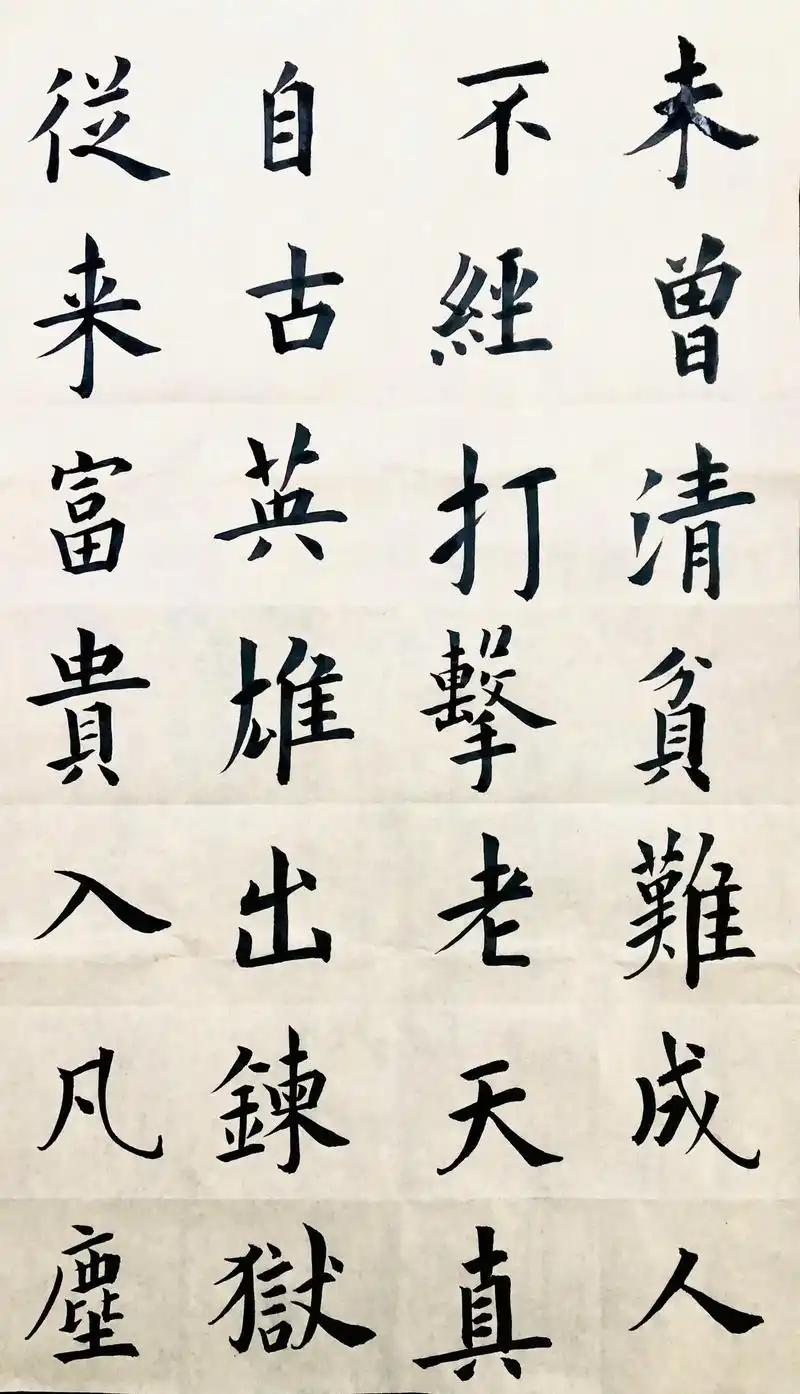 未曽清貧難成人
不經打擊老天真
自古英雄出鍊獄
従来富貴入凡塵